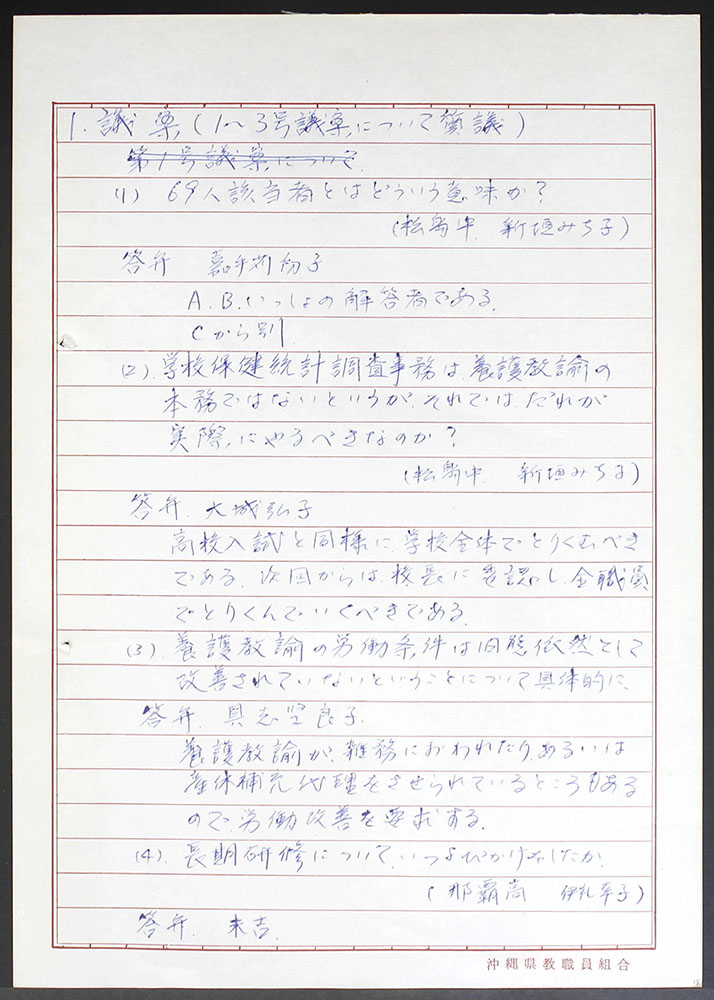 1. 議案（1～3号議案について質議）
第1号議案について
(1) 69人該当者とはどういう意味か？
(松島中. 新垣みち子)
答弁 嘉手苅 子
A.B.いっしょの解答者である.
Cから別
(2). 学校保健統計調査事務は、養護教諭の
本務ではないというが、それでは、だれが
実際にやるべきなのか？
(松島中 新垣みち子)
答弁. 大城弘子
高校入試と同様に、学校全体でとりくむべき
である. 次回からは、校長に し、全職員
でとりくんでいくべきである.
(3) 養護教諭の労働条件は旧態依然として
改善されていないということについて具体的に.
答弁. 具志堅良子.
養護教諭が、雑務におわれたり、あるいは
産休補充代理をさせられているところもある
ので、労働改善を要求する.
(4). 長期研修について、いつよびかけなしたか.
(那覇高 伊礼 子)
答弁. 末吉.
沖縄県教職員組合